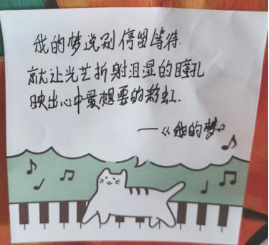 我的梦说别停留等待
就让光芒折射泪湿的瞳孔
映出心中最想要的彩虹.
——《我的梦》